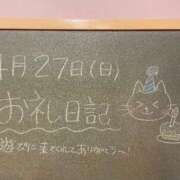 4月27日(日)
お礼日記
遊びに来てくれてありがとう〜!